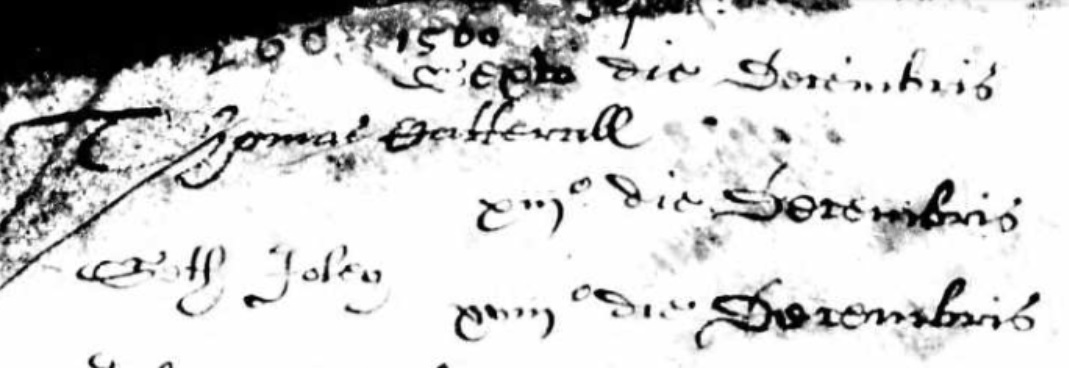 1500
Sexto die Decembris
Thomas Catterall
xiij° die Decembris
Seth Joley
xviij° die Decembris